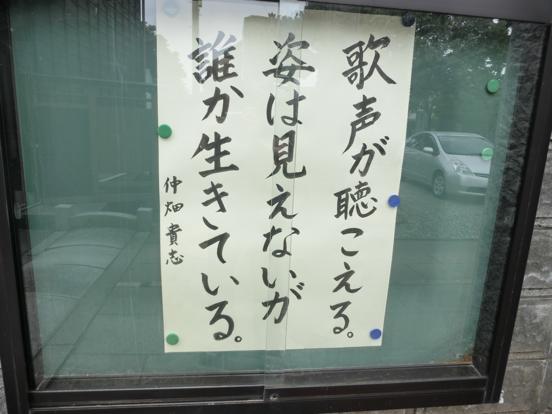 歌声が聴こえる。
姿は見えないが
誰か生きている。
仲畑貴志